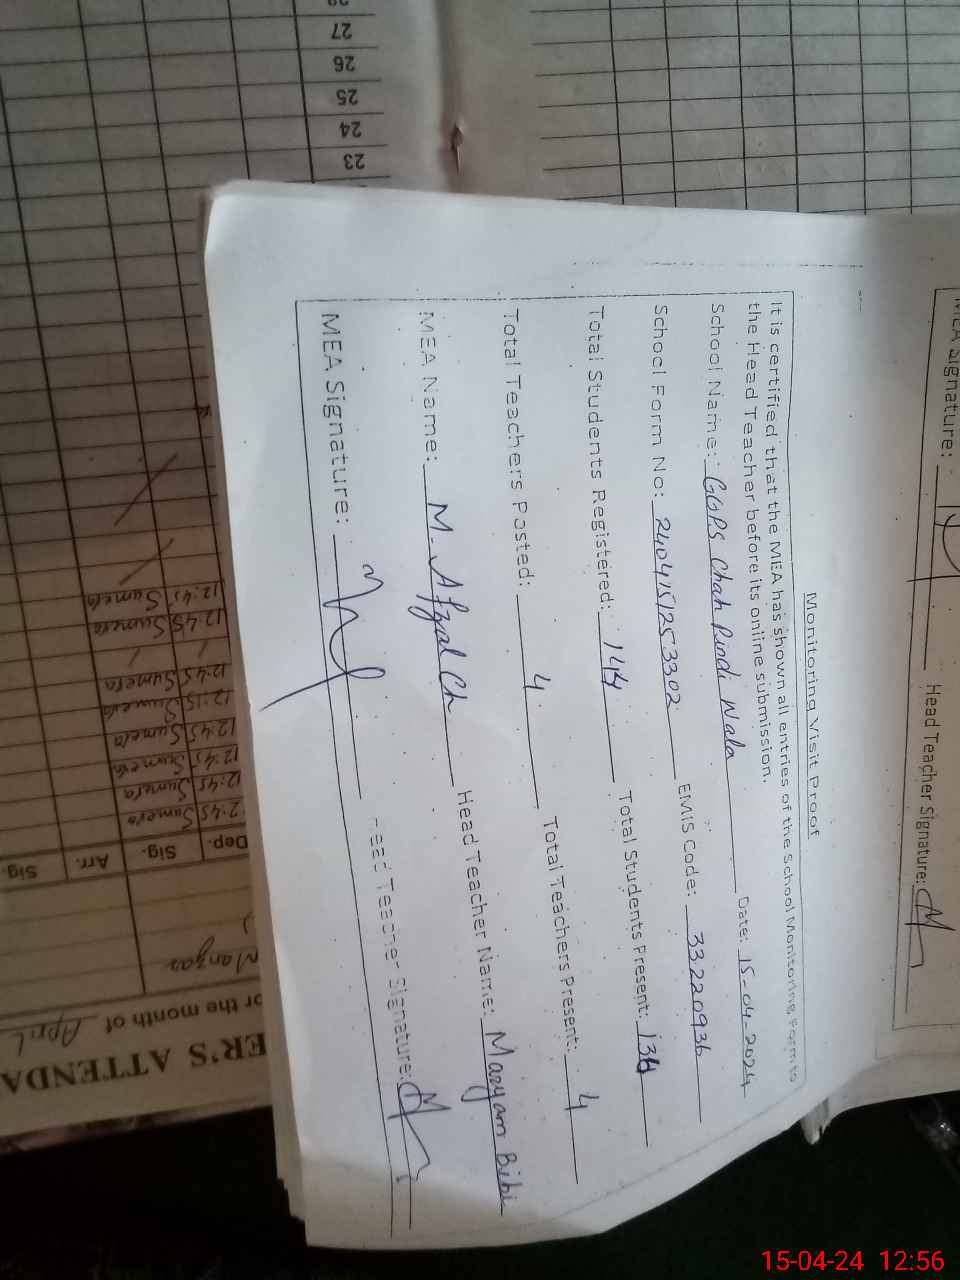 Monitoring Visit Proof
It is certified that the MEA has shown all entries of the School Monitoring Form to
the Head Teacher before its online submission.
School Name: GGPS Chah Pindi Wala Date: 15-04-2024
School Form No: 2404151253302 EMIS Code: 33220936
Total Students Registered: 144 Total Students Present: 134
Total Teachers Posted: 4 Total Teachers Present: 4
MEA Name: M. Afzal Ch Head Teacher Name: Maryam Bibi
MEA Signature: Head Teacher Signature:
MEA Signature: Head Teacher Signature:
ER'S ATTENDA
or the month of April
Manzas
Dep. Sig. Arr. Sig.
2:45 Sumera
12:45 Sumera
12:45 Sumera
12:45 Sumera
12:15 Sumera
12:45 Sumera
12:45 Sumera
12:45 Sumera
23
24
25
26
27
28
15-04-24 12:56